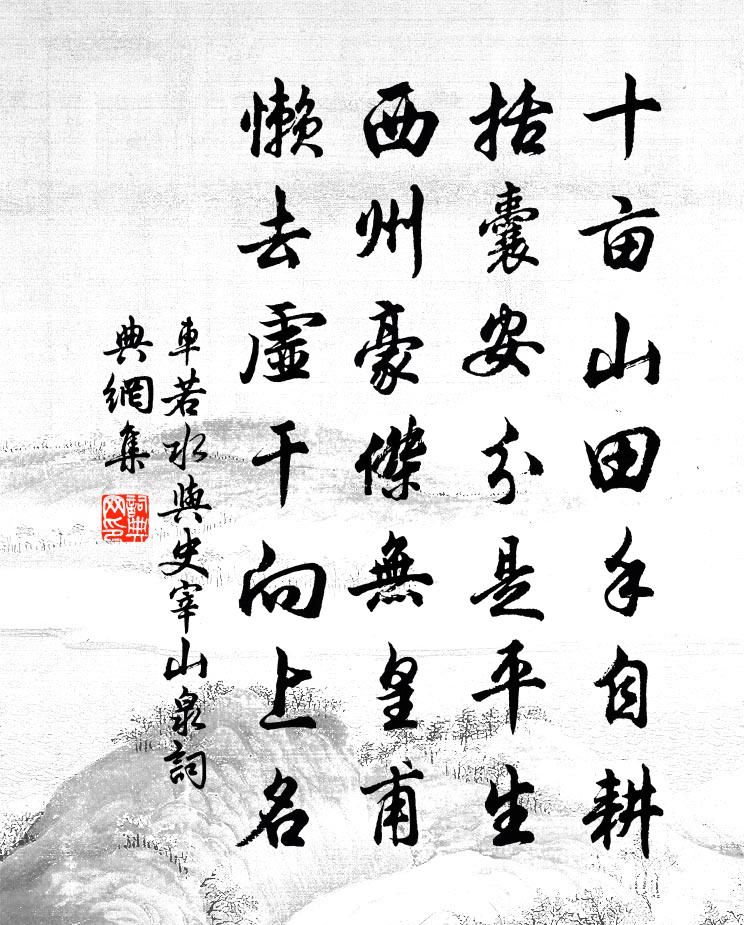 十亩山田手自耕
括囊安分是平生
西州豪傑無皇甫
懶去虛干向上名
車若水與史宰山泉詞
典網集
詞典
网印